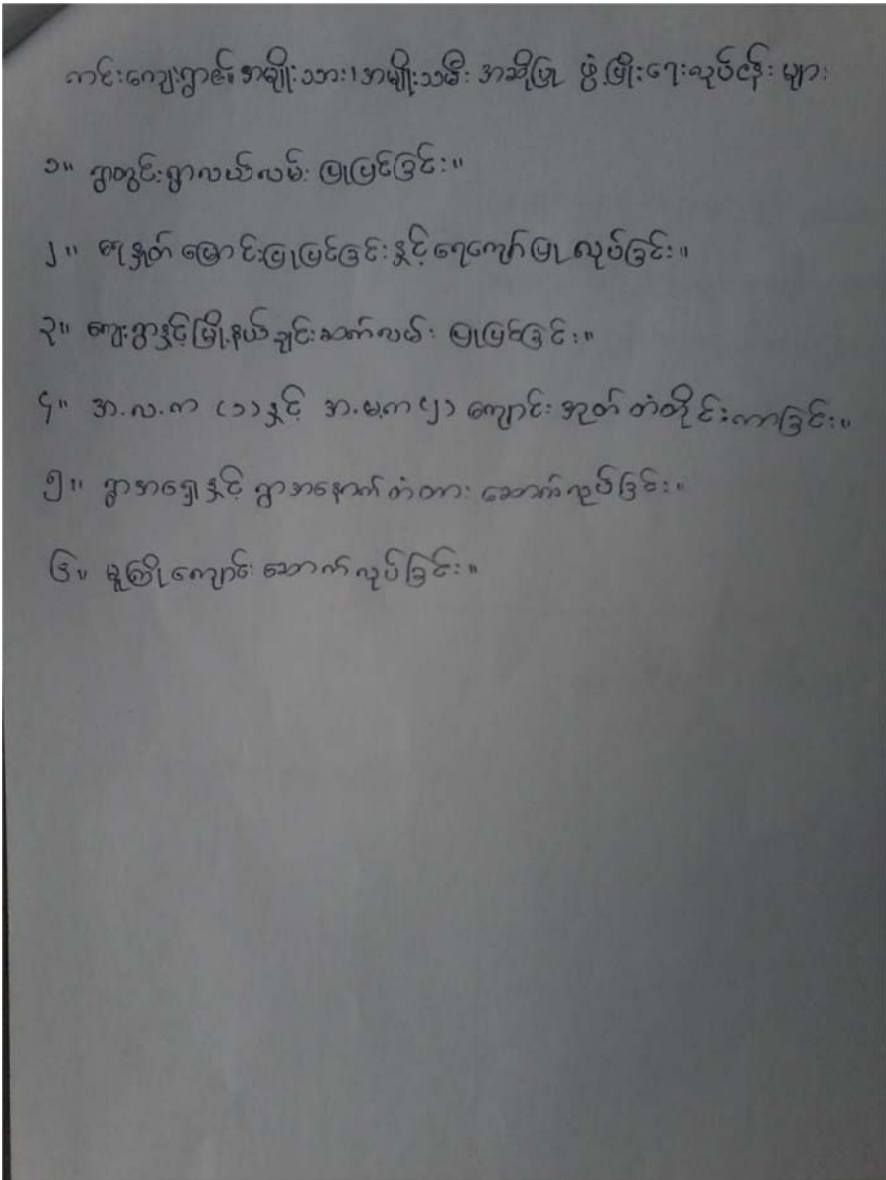 ကင်းကျေးရွာ၏ အမျိုးသား၊ အမျိုးသမီး အဆိုပြု ဖွံ့ဖြိုးရေးလုပ်ငန်း များ
၁။ ရွာတွင်းရွာလယ်လမ်း ပြုပြင်ခြင်း။
၂။ ရေနှုတ်မြောင်းပြုပြင်ခြင်းနှင့် ရေကျော်ပြုလုပ်ခြင်း။
၃။ ကျေးရွာနှင့်မြို့နယ်ချင်းဆက်လမ်း ပြုပြင်ခြင်း။
၄။ အ.လ.က (၁) နှင့် အ.မ.က (၂) ကျောင်း အုတ်တံတိုင်းကာခြင်း။
၅။ ရွာအရှေ့နှင့် ရွာအနောက်တံတား ဆောက်လုပ်ခြင်း။
၆။ မူကြိုကျောင်း ဆောက်လုပ်ခြင်း။